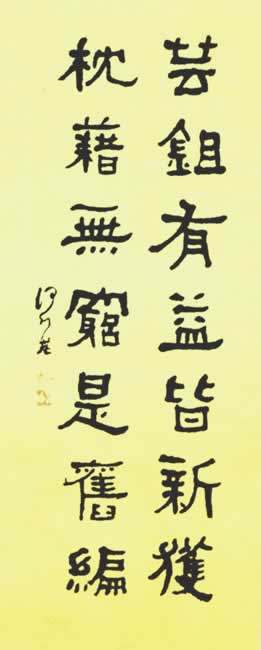 芸鉏有益皆新獲
枕藉無窮是舊編